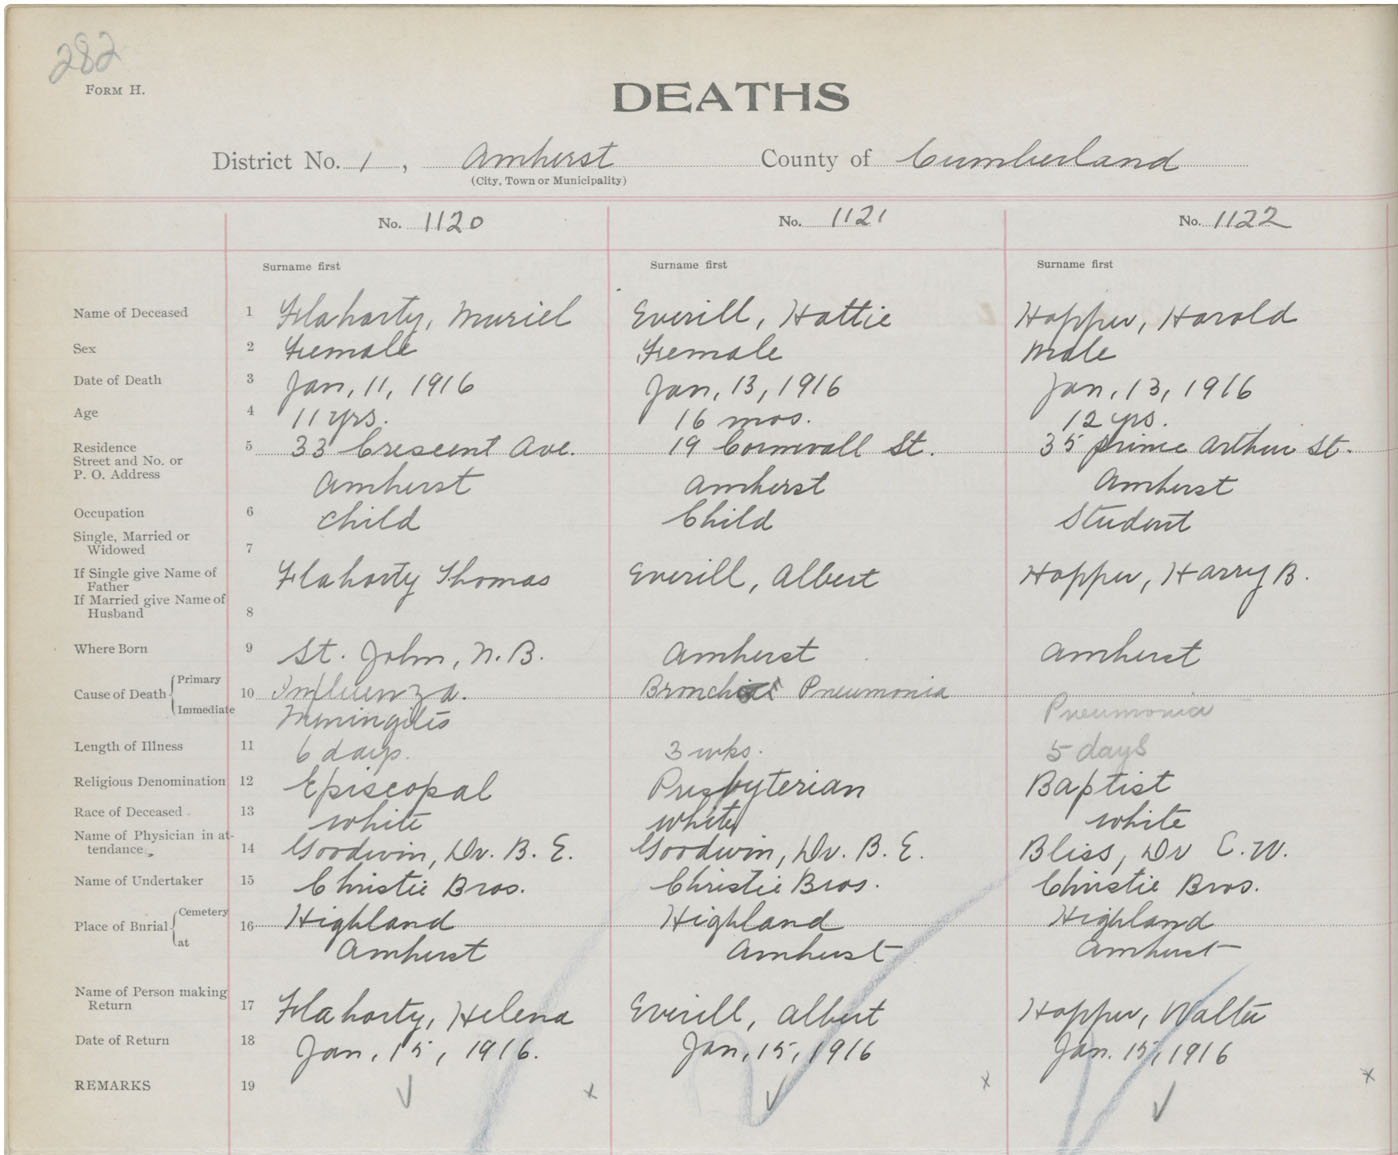 282
FORM H.
DEATHS
District No. 1, Amherst County of Cumberland
(City, Town or Municipality)
No. 1120 No. 1121 No. 1122
Surname first Surname first Surname first
Name of Deceased 1 Flaharty, Muriel Everill, Hattie Hopper, Harold
Sex 2 Female Female Male
Date of Death 3 Jan, 11, 1916 Jan, 13, 1916 Jan, 13, 1916
Age 4 11 yrs. 16 mos. 12 yrs.
Residence 5 33 Crescent Ave. 19 Cornwall St. 35 Prince Arthur St.
Street and No. or
P. O. Address Amherst Amherst Amherst
Occupation 6 Child Child Student
Single, Married or
Widowed 7
If Single give Name of Flaharty Thomas Everill, Albert Hopper, Harry B.
Father
If Married give Name of
Husband 8
Where Born 9 St. John, N.B. Amherst Amherst
Cause of Death Primary 10 Influenza. Bronchial Pneumonia
Immediate Meningitis Pneumonia
Length of Illness 11 6 days. 3 wks. 5 days
Religious Denomination 12 Episcopal Presbyterian Baptist
Race of Deceased 13 white white white
Name of Physician in at-
tendance 14 Goodwin, Dr. B. E. Goodwin, Dr. B. E. Bliss, Dr C. W.
Name of Undertaker 15 Christie Bros. Christie Bros. Christie Bros.
Place of Burial Cemetery 16 Highland Highland Highland
at Amherst Amherst Amherst
Name of Person making
Return 17 Flaharty, Helena Everill, Albert Hopper, Walter
Date of Return 18 Jan, 15, 1916. Jan, 15, 1916 Jan. 15, 1916
REMARKS 19